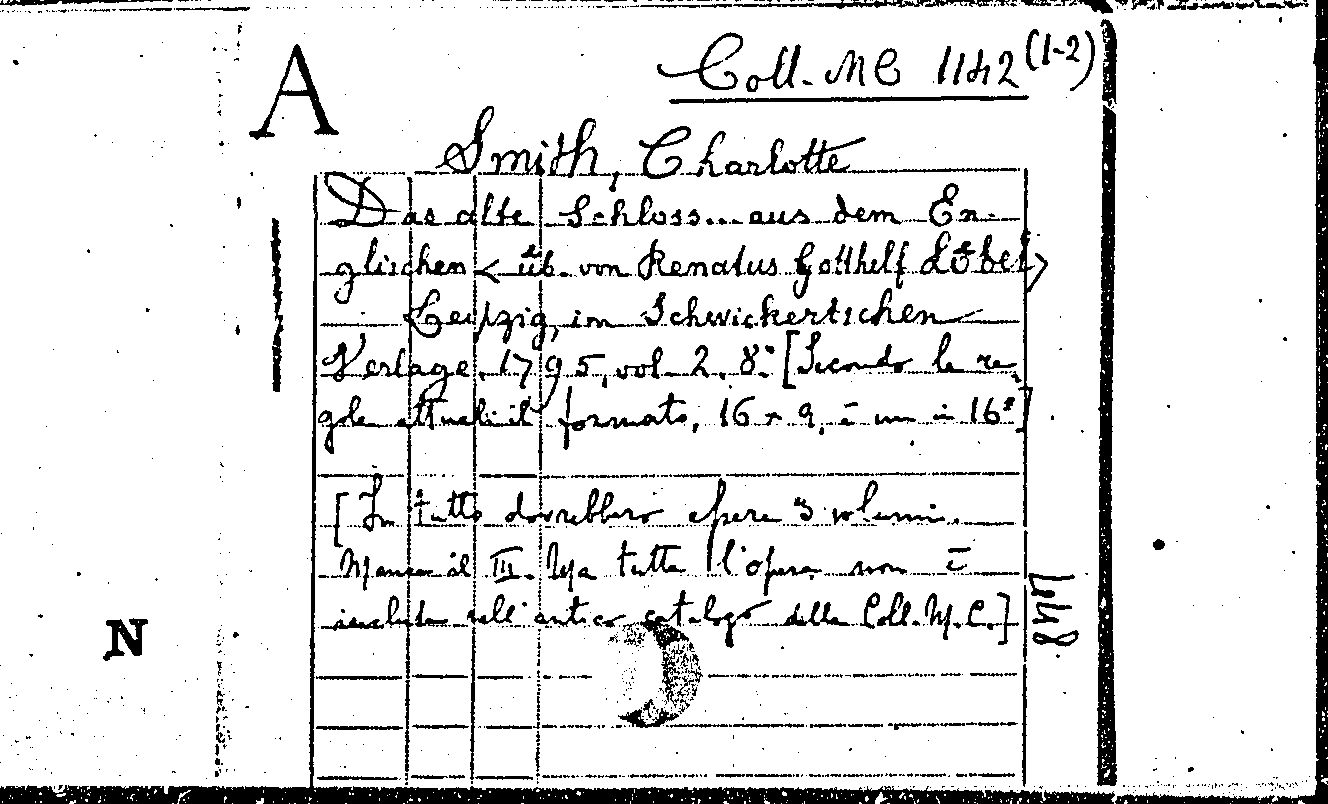 A
Coll. MC 1142 (1-2)
Smith, Charlotte
Das alte Schloss... aus dem En-
glischen < üb. von Renatus Gotthelf Löbel >
Leipzig, im Schwickertschen
Verlage, 1795, vol. 2. 8.° [Secondo le re-
gole attuali il formato, 16 x 9, è un in 16°]
[In tutto dovrebbero essere 3 volumi.
Manca il III. Ma tutta l'opera non è
inclusa nell'antico catalogo della Coll. M.C.]
N